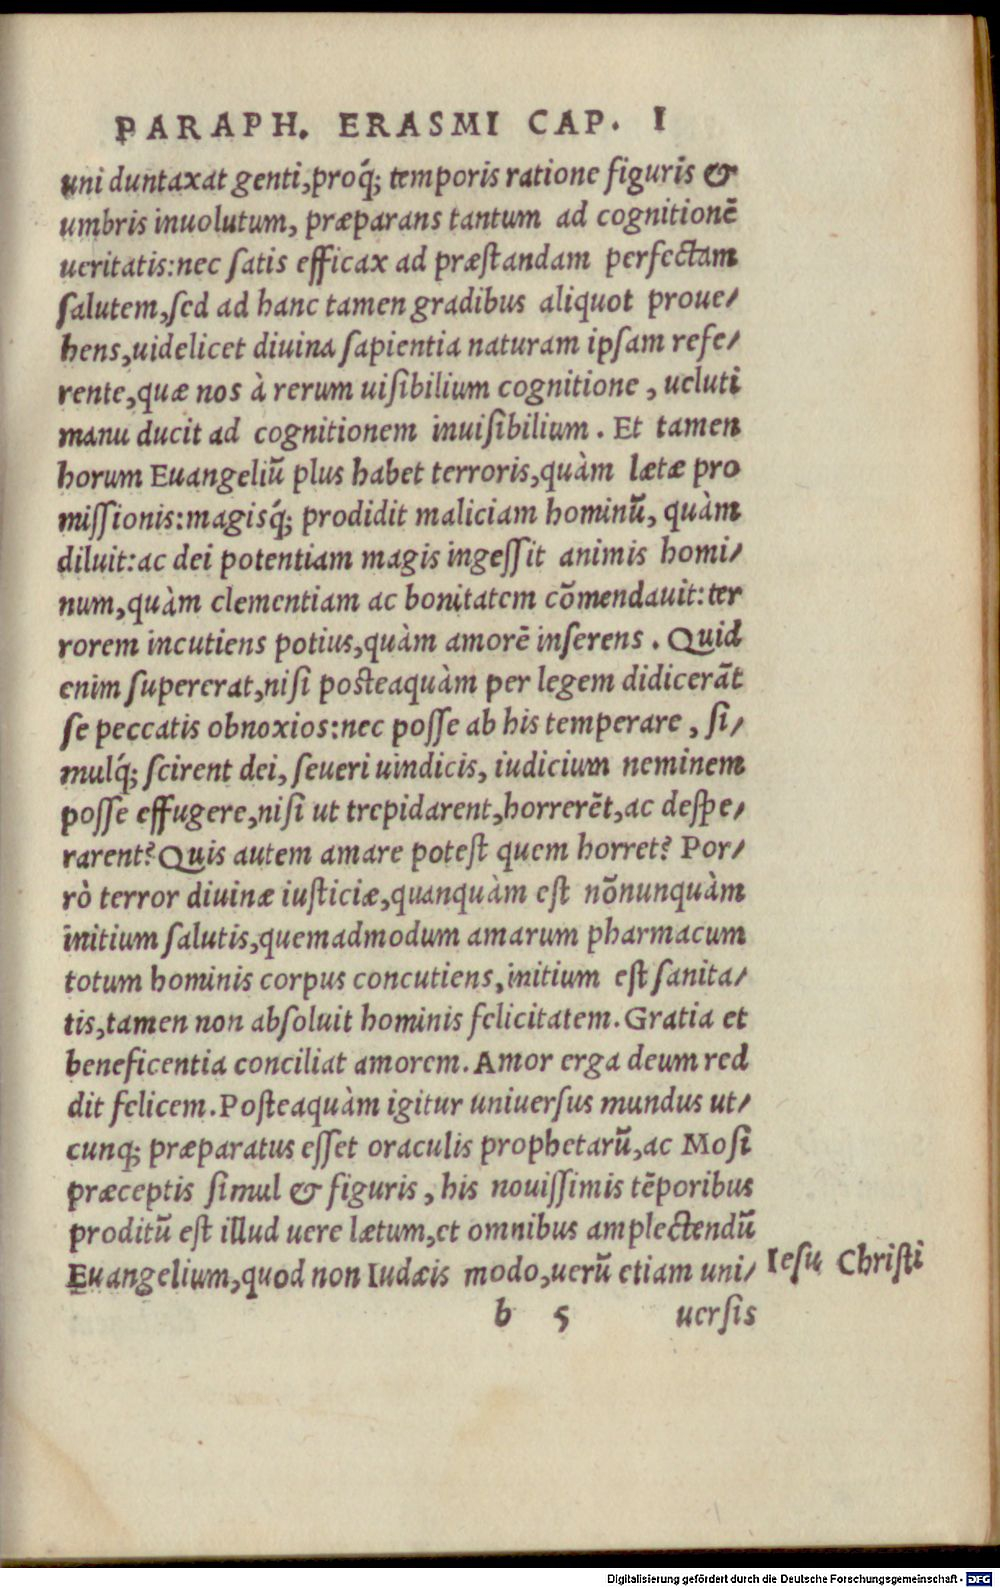 PARAPH. ERASMI CAP. I
uni duntaxat genti, proq́; temporis ratione figuris &
umbris inuolutum, præparans tantum ad cognitionē
ueritatis: nec satis efficax ad præstandam perfectam
salutem, sed ad hanc tamen gradibus aliquot proue/
hens, uidelicet diuina sapientia naturam ipsam refe/
rente, quæ nos à rerum uisibilium cognitione, ueluti
manu ducit ad cognitionem inuisibilium. Et tamen
horum Euangeliū plus habet terroris, quàm lætæ pro
missionis: magisq́; prodidit maliciam hominū, quàm
diluit: ac dei potentiam magis ingessit animis homi/
num, quàm clementiam ac bonitatem cōmendauit: ter
rorem incutiens potius, quàm amorē inserens. Quid
enim supererat, nisi posteaquàm per legem didicerāt
se peccatis obnoxios: nec posse ab his temperare, si/
mulq́; scirent dei, seueri uindicis, iudicium neminem
posse effugere, nisi ut trepidarent, horrerēt, ac despe/
rarent? Quis autem amare potest quem horret? Por/
rò terror diuinæ iusticiæ, quanquàm est nōnunquàm
initium salutis, quemadmodum amarum pharmacum
totum hominis corpus concutiens, initium est sanita/
tis, tamen non absoluit hominis felicitatem. Gratia et
beneficentia conciliat amorem. Amor erga deum red
dit felicem. Posteaquàm igitur uniuersus mundus ut/
cunq; præparatus esset oraculis prophetarū, ac Mosi
præceptis simul & figuris, his nouissimis tēporibus
proditū est illud uere lætum, et omnibus amplectendū
Euangelium, quod non Iudæis modo, uerū etiam uni/
Iesu Christi
b 5 uersis
Digitalisierung gefördert durch die Deutsche Forschungsgemeinschaft - DFG